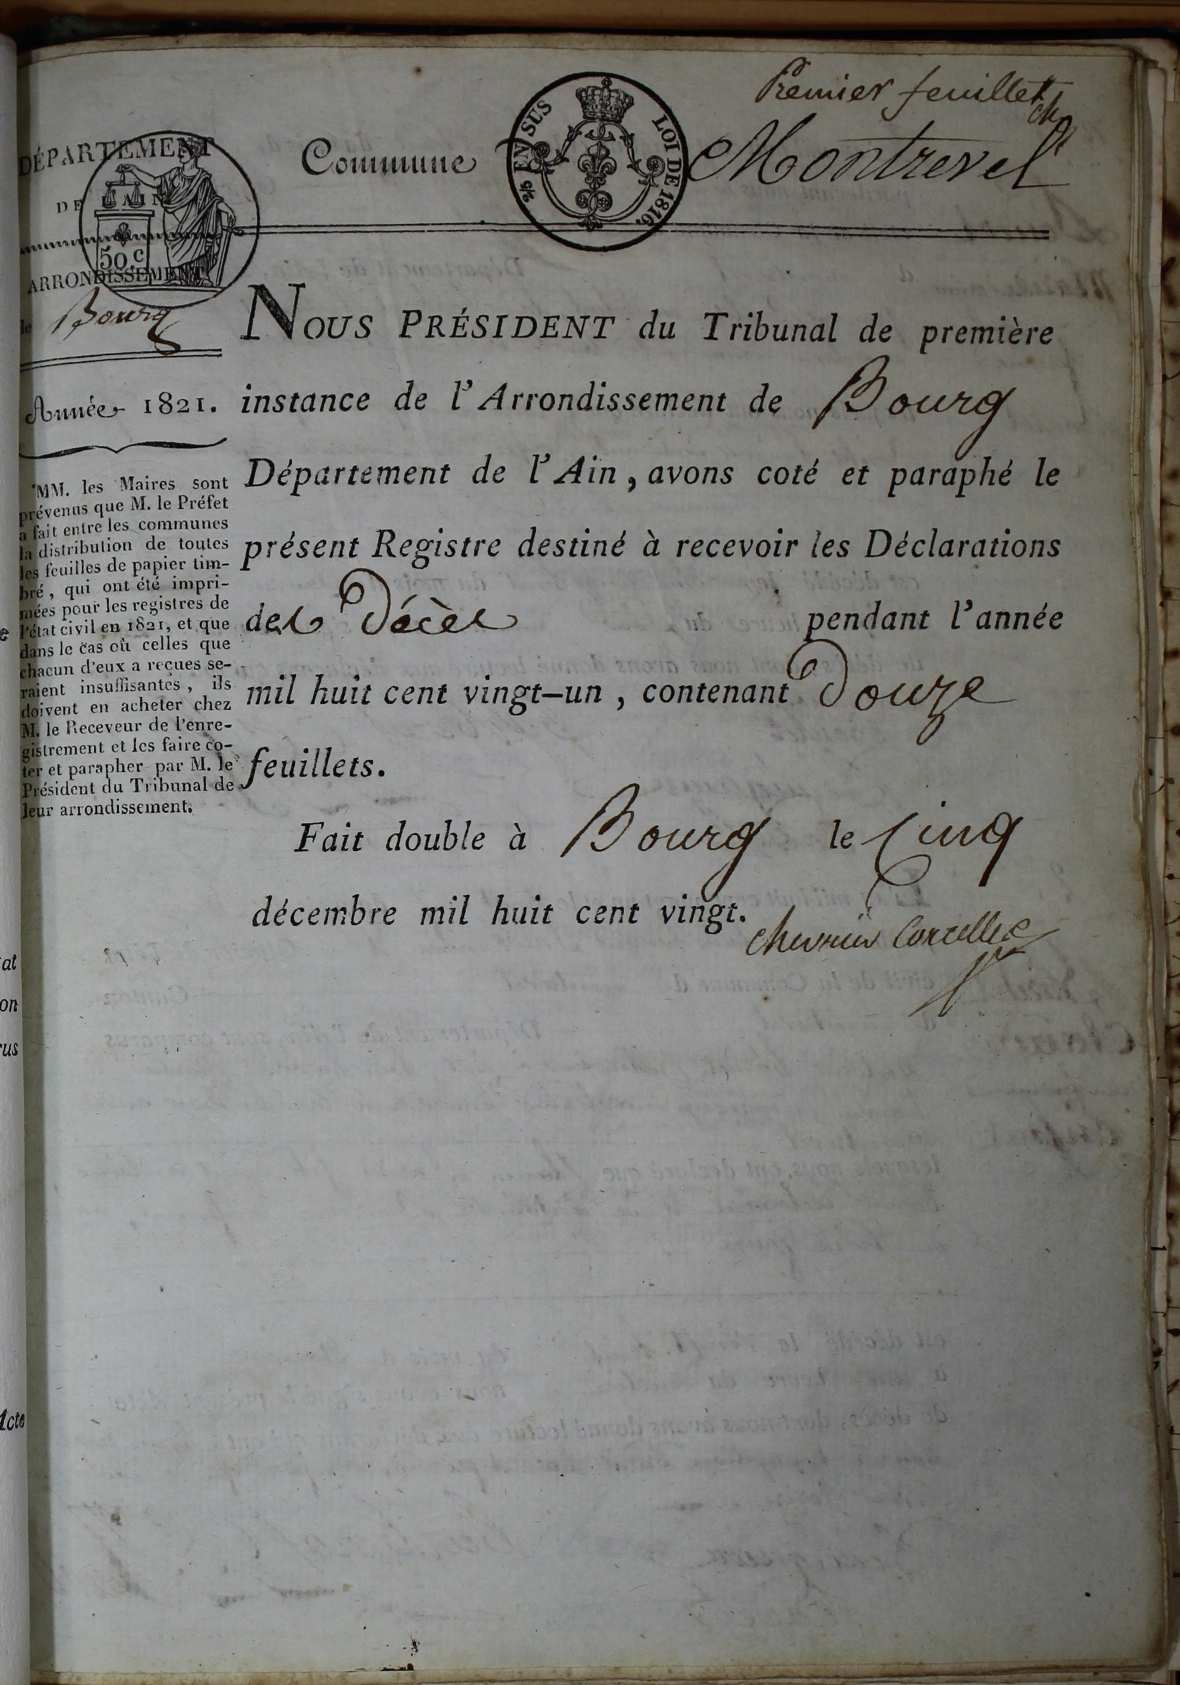 Premier feuillet
DÉPARTEMENT
DE L'AIN
ARRONDISSEMENT
de Bourg
50 c
Commune
EN SUS
LOI DE 1816.
Montrevel
Année 1821.
MM. les Maires sont
prévenus que M. le Préfet
a fait entre les communes
la distribution de toutes
les feuilles de papier tim-
bré, qui ont été impri-
mées pour les registres de
l'état civil en 1821, et que
dans le cas où celles que
chacun d'eux a reçues se-
raient insuffisantes, ils
doivent en acheter chez
M. le Receveur de l'enre-
gistrement et les faire co-
ter et parapher par M. le
Président du Tribunal de
leur arrondissement.
NOUS PRÉSIDENT du Tribunal de première
instance de l'Arrondissement de Bourg
Département de l'Ain, avons coté et paraphé le
présent Registre destiné à recevoir les Déclarations
des Décès pendant l'année
mil huit cent vingt-un, contenant Douze
feuillets.
Fait double à Bourg le Cinq
décembre mil huit cent vingt.
Corcelles